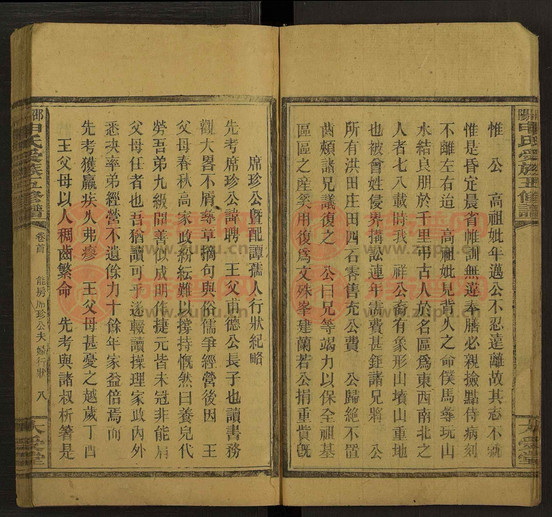 惟 公 高祖妣年邁公不忍遠離故其志不就
惟是昏定晨省帷訓無違奉膳必親撿點侍病刻
不離左右迨 高祖妣兄背人之命僕馬尋玩山
水結良朋於千里弔古人於名區為東西南北之
人者七八載時我 祥公裔有象形山墳山重地
也被曾姓侵界搆訟連年費甚鉅諸兄將 公
所有洪田庄田四石零售充公費 公歸絕不置
齒頰諸兄議復之 公曰兄等竭力以保全祖基
區區之產業用復為文殊峯建蘭若公捐重貲既
席珍公暨配譚孺人行狀紀略
先考席珍公諱聘 王父甫德公長子也讀書務
觀大畧不屑尋章摘句與俗儒爭經營後因 王
父母春秋高家政紛紜難以撐持慨然曰養兒代
勞吾弟九級開善似成明作捷元皆未冠非能肩
父母任者也吾猶讀可乎遂輟讀操理家政內外
悉決率弟經營不遺餘力十餘年家益倍焉向
先考獲羸疾人弗疹 王父母甚憂之越歲丁酉
王父母以人稠齒繁命 先考與諸叔析箸是
申氏受族五修譜
卷首
席珍公夫婦行狀 八